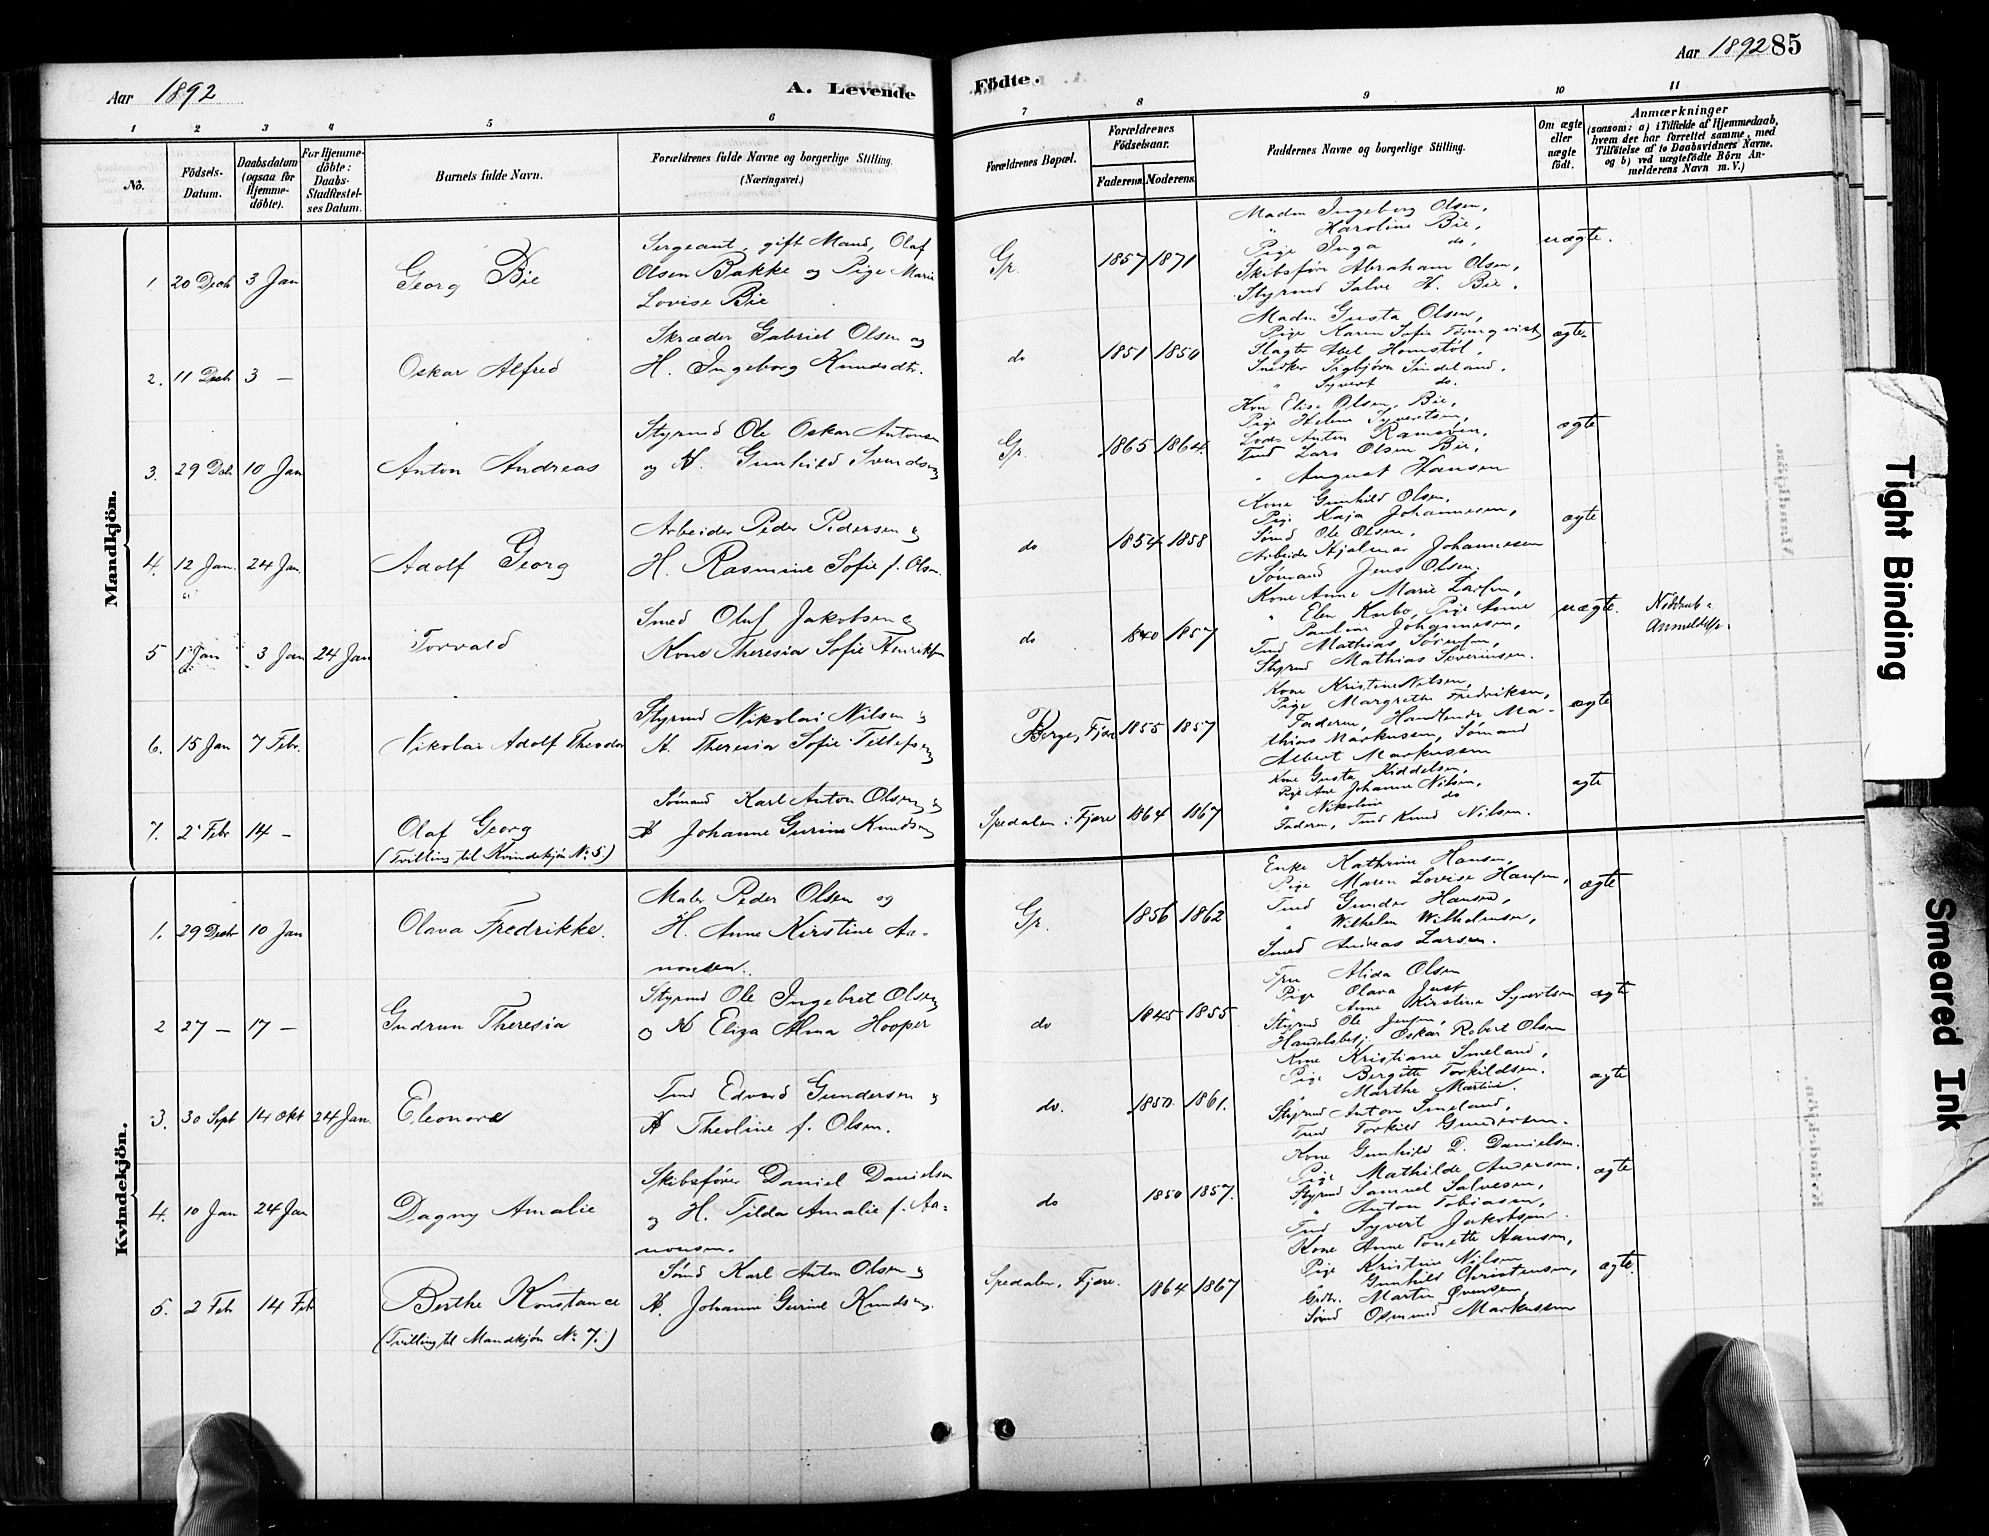 Aar 1892
A. Levende
1 2 3 4 5 6
No.
Födsels-Datum.
Daabsdatum (ogsaa for Hjemme-döbte).
For Hjemme-döbte: Daabs-Stadfæstel-ses Datum.
Barnets fulde Navn.
Forældrenes fulde Navne og borgerlige Stilling. (Næringsvei.)
Mandkjön.
1. 20 Decb 3 Jan Georg Bie
Sergeant, gift Mand, Olaf
Olsen Bakke og Pige Marie
Lovise Bie
2. 11 Decb 3 — Oskar Alfred
Skræder Gabriel Olsen og
H. Ingeborg Knudsdtr.
3. 29 Dcb. 10 Jan Anton Andreas
Styrmd Ole Oskar Antonsen
og H. Gunhild Svends
4. 12 Jan. 24 Jan. Adolf Georg
Arbeider Peder Pedersen og
H. Rasmine Sofie f. Olsen.
5 1 Jan 3 Jan 24 Jan Torvald
Smed Oluf Jakobsen og
Kone Theresia Sofie Henriksen
6. 15 Jan 7 Febr. Nikolai Adolf Theodor
Styrmd Nikolai Nilsen og
H. Theresia Sofie Tellefsen
7. 2 Febr 14 — Olaf Georg
(Tvilling til Kvindekjön No. 5)
Sömand Karl Anton Olsen og
H Johanne Gurine Knudsen
Kvindekjön.
1. 29 Decbr 10 Jan Olava Fredrikke.
Maler Peder Olsen og
H. Anne Kirstine Aa-
nonsen.
2 27 — 17 — Gudrun Theresia
Styrmd Ole Ingebret Olsen
og H Eliza Alma Hooper
3. 30 Sept 14 Okt 24 Jan. Eleonora
Tmd Edvard Gundersen og
H Theoline f. Olsen.
4. 10 Jan 24 Jan Dagny Amalie
Skibsfører Daniel Danielsen
og H. Tilda Amalie f. Aa-
nonsen.
5. 2 Feb 14 Feb Berthe Konstance
(Tvilling til Mandkjön No. 7.)
Sömd Karl Anton Olsen og
H. Johanne Gurine Knudsen.
Födte.
Aar 1892 85
7 8 9 10 11
Forældrenes Bopæl.
Forældrenes Födselsaar.
Faderens. Moderens.
Faddernes Navne og borgerlige Stilling.
Om ægte eller uægte födt.
Anmærkninger
(saasom: a) i Tilfælde af Hjemmedaab, hvem der har forrettet samme, med Tilföielse af to Daabsvidners Navne. og b) ved uægtefödte Börn An-melderens Navn m. V.)
Gr. 1857 1871 uægte.
Madm Ingeborg Olsen,
" Karoline Bie,
Pige Inga do,
Skibsfør Abraham Olsen,
Styrmd Salve H. Bie.
do 1851 1850 ægte
Madm Gusta Olsen,
Pige Karen Sofie Törnqvist,
Slagter Abel Homstöl,
Snedker Sigbjörn Sindeland.
" Syvert do.
Gr. 1865 1864. ægte
Kon Elise Olsen, Bie,
Pige Helene Syvertsen,
Lods Anton
Tmd Lars Olsen Bie,
" August Hansen
do 1854 1858 ægte
Kone Gunhild Olsen,
Pige Kaja Johannesen,
Sømd Ole Olsen,
Arbeider Hjalmar Johannesen
Sømand Jens Olsen.
do 1840 1857 uægte.
Kone Anne Marie Larsen,
" Elen Knbo, Pige Anne
Pauline Johannesen,
Tmd Mathias Sørensen,
Styrmd Mathias Severinsen.
Berge, Fjære 1855 1857 ægte
Kone Kristine Nilsen,
Pige Margrethe Fredriksen,
Faderen, Handlende Ma-
thias Markussen, Sømand
Albert Markussen
Spedalen i Fjære 1864 1867 ægte
Kone Gusta Kiddelsen,
Pige Ane Johanne Nilsen,
" Nikoline do
Faderen, Tmd Knud Nilsen.
Gr. 1856 1862 ægte
Enke Kathrine Hansen,
Pige Maren Lovise Hansen,
Tmd Gunder Hansen,
" Wilhelm Wilhelmsen,
Smed Andreas Larsen.
do 1845 1855 ægte
Fru Alida Olsen
Pige Olava Just
" Anne Kirstine Syvertsen
Styrmd Ole Jensen,
Handelsbetj. Oskar Robert Olsen
do. 1850 1861. ægte
Kone Kristiane Smeland,
Pige Bergitte Torkildsen.
" Marthe Martine.
Styrmd Anton Smeland,
Tmd Torkild Gundersen.
do 1850 1857. ægte
Kone Gunhild D. Danielsen.
Pige Mathilde Andersen.
Styrmd Samuel Salvesen,
" Anton Tobiasen,
Tmd Syvert Jakobsen.
Spedalen, Fjære. 1864 1867 ægte.
Kone Anne Tonette Hansen,
Pige Kristine Nilsen
" Gunhild Christensen,
Grdbr. Martin Evensen
Sømd Osmund Markussen
Tight Binding
Smeared Ink